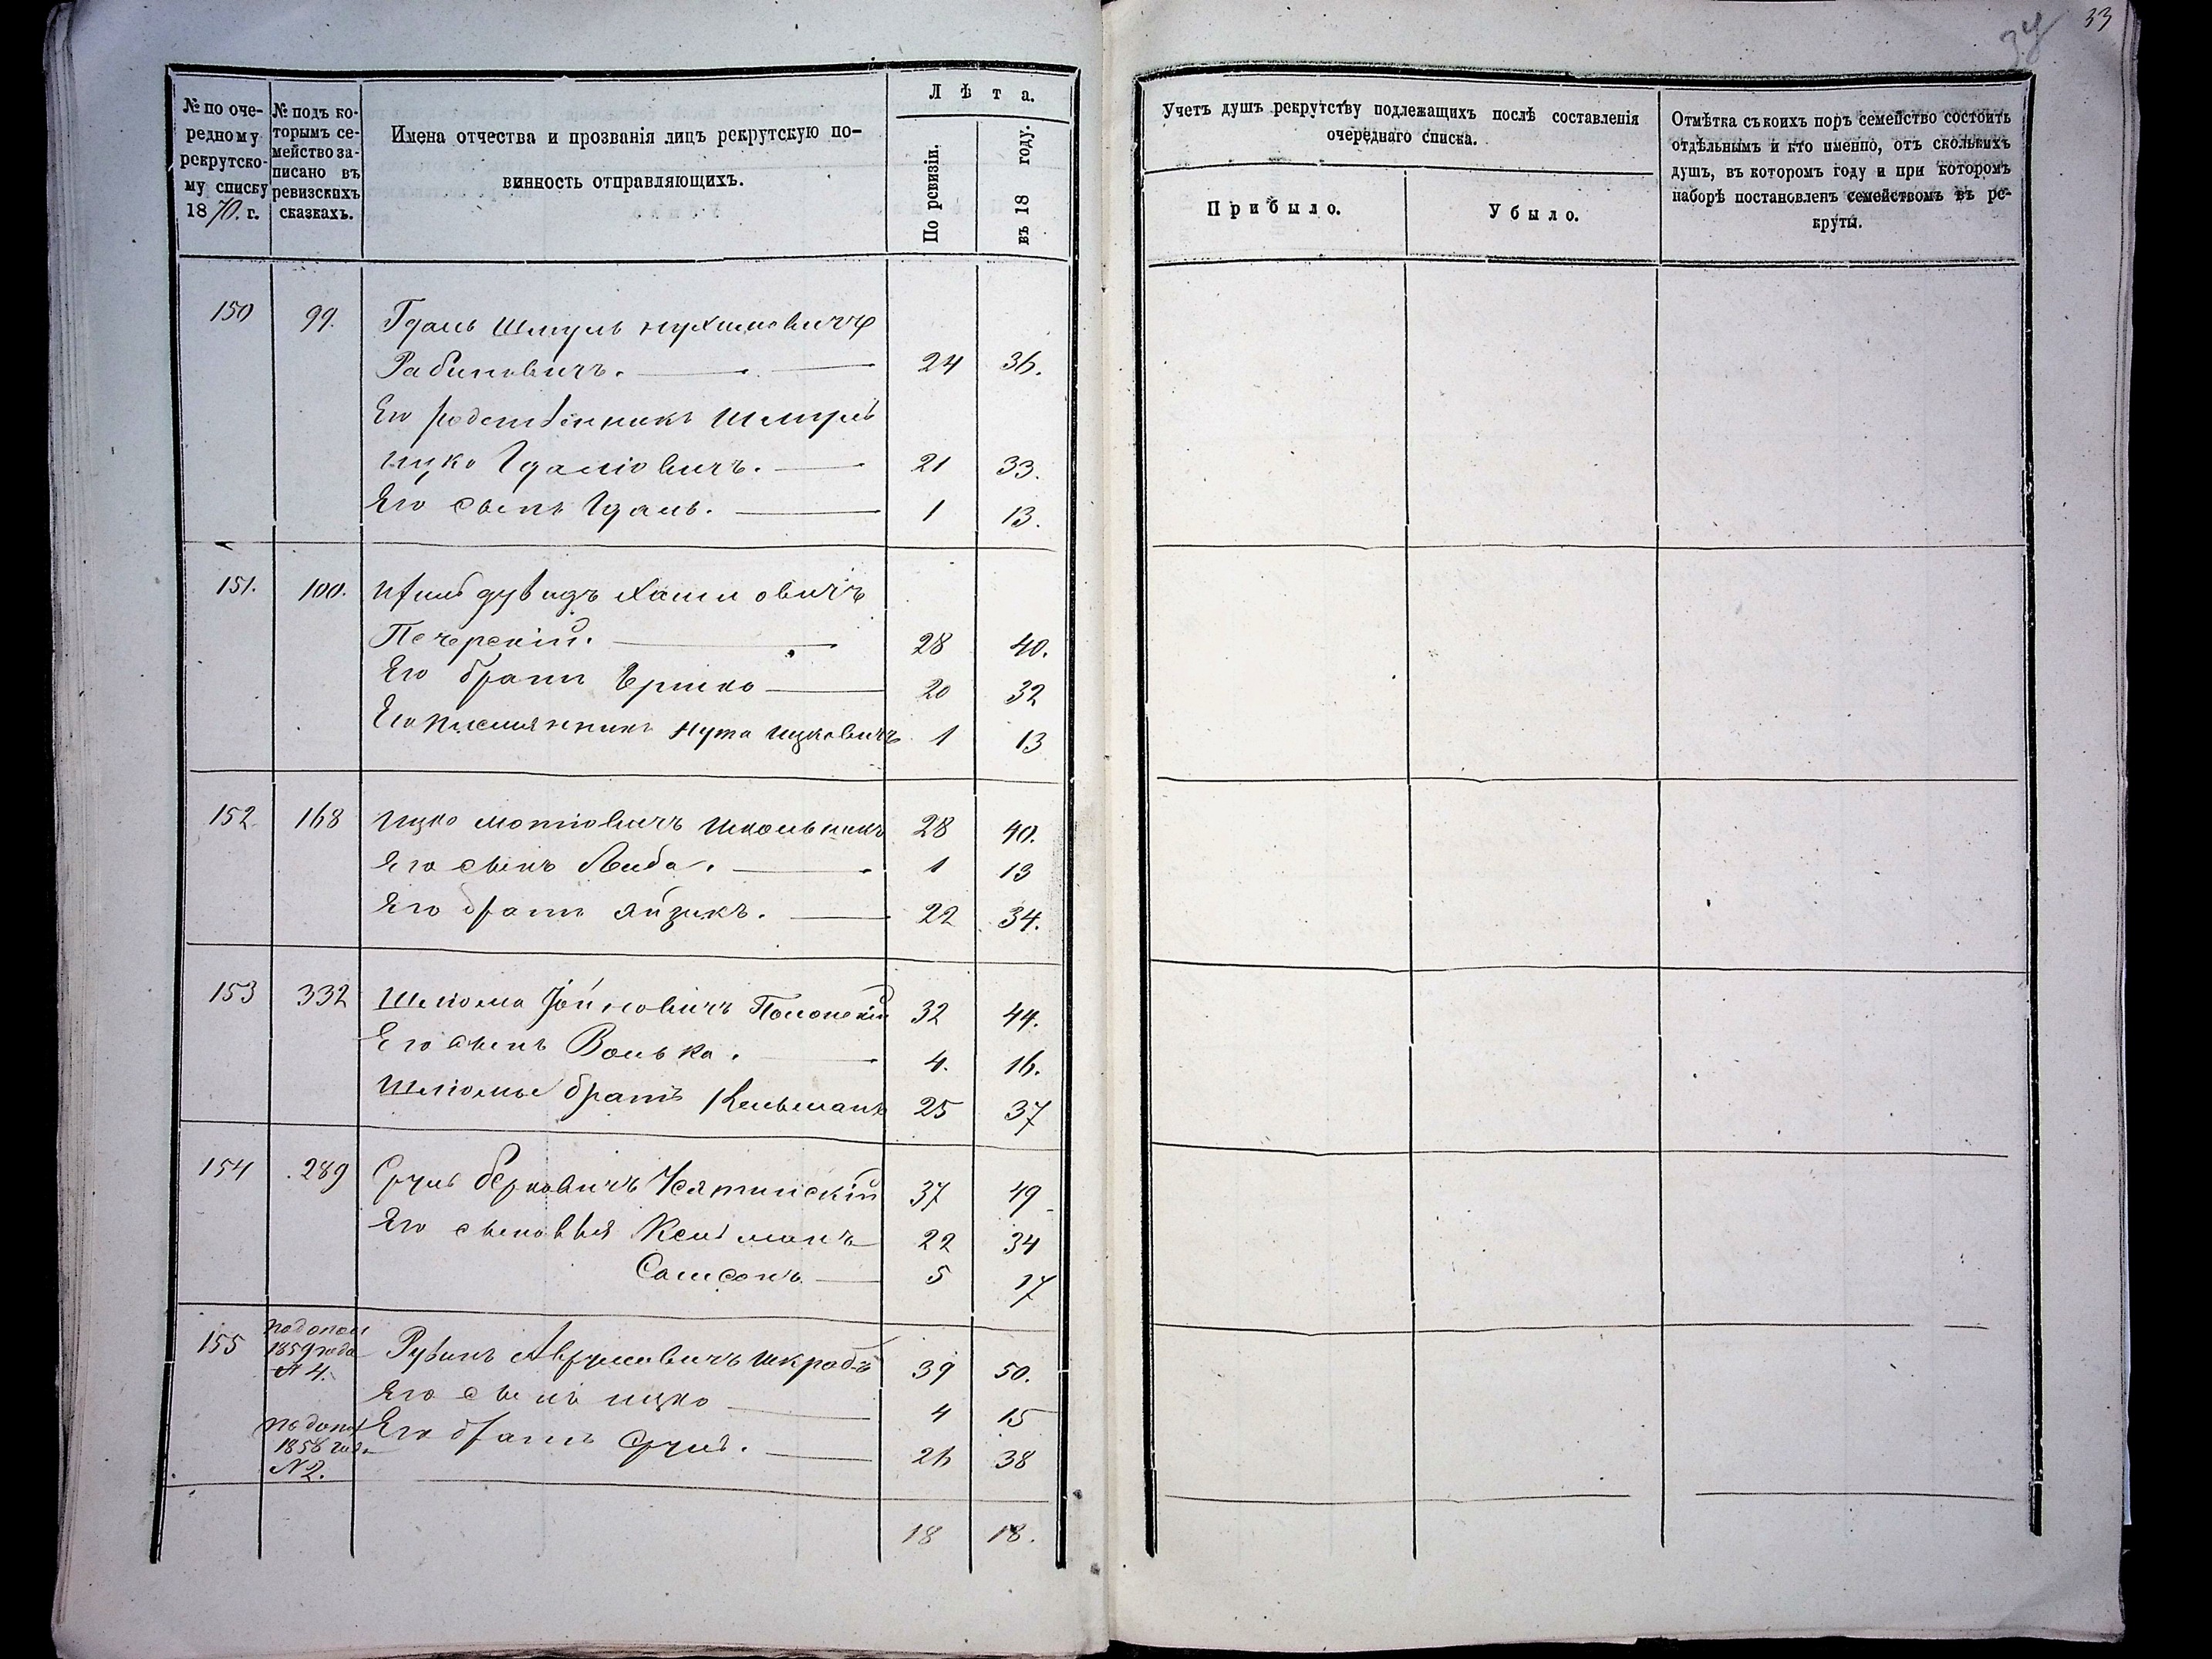 33
34
№ по оче-
редному
рекрутско-
му списку
1870. г.
№ подъ ко-
торымъ се-
мейство за-
писано въ
ревизскихъ
сказкахъ.
Имена отчества и прозванія лицъ рекрутскую по-
винность отправляющихъ.
Лѣта.
По ревизіи.
въ 18 году.
Учетъ душъ рекрутству подлежащихъ послѣ составленія
очереднаго списка.
Прибыло.
Убыло.
Отмѣтка съ коихъ поръ семейство состоитъ
отдѣльнымъ и кто именно, отъ сколькихъ
душъ, въ которомъ году и при которомъ
наборѣ постановленъ семействомъ въ ре-
круты.
150 99. Гдаль Шмуль Нухимовичъ
Рабиновичъ. 24 36.
Его родственникъ Шмуль
Ицко Гдаліовичъ. 21 33.
Его сынъ Гдаль. 1 13.
151. 100. Дувидъ Хаимовичъ
Печерскій. 28 40.
Его братъ Ершко 20 32
Его племянникъ Нута Ицковичъ 1 13
152 168 Ицко Мотіовичъ Школьникъ 28 40.
Его сынъ Лейба. 1 13
Его братъ Айзикъ. 22 34.
153 332 Шліома Іойновичъ Полонскій 32 44.
Его сынъ Волька. 4. 16.
Шліомы братъ Кельманъ 25 37
154 289 Сруль Берковичъ 37 49
Его сыновья Кельманъ 22 34
Самсонъ 5 17
155 по допол
1859 года
№ 4. Рувинъ Аврумовичъ Шкрабъ 39 50.
Его сынъ Ицко 4 15
по допол
1858 года
№ 2. Его братъ Сруль. 26 38
18 18.